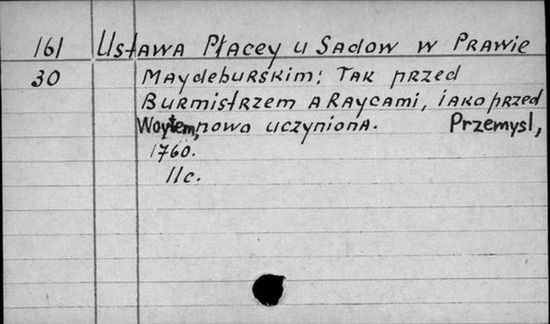 161 Ustawa Płacey u Sadow w Prawie
30 Maydeburskim: Tak przed
Burmistrzem a Raycami, iako przed
Woytem, nowo uczyniona. Przemysl,
1760.
11c.